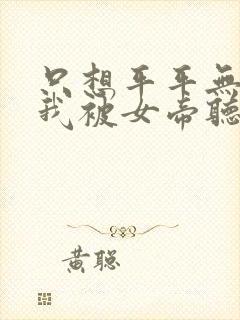 只想平平無
我被女帝聽
黃聪